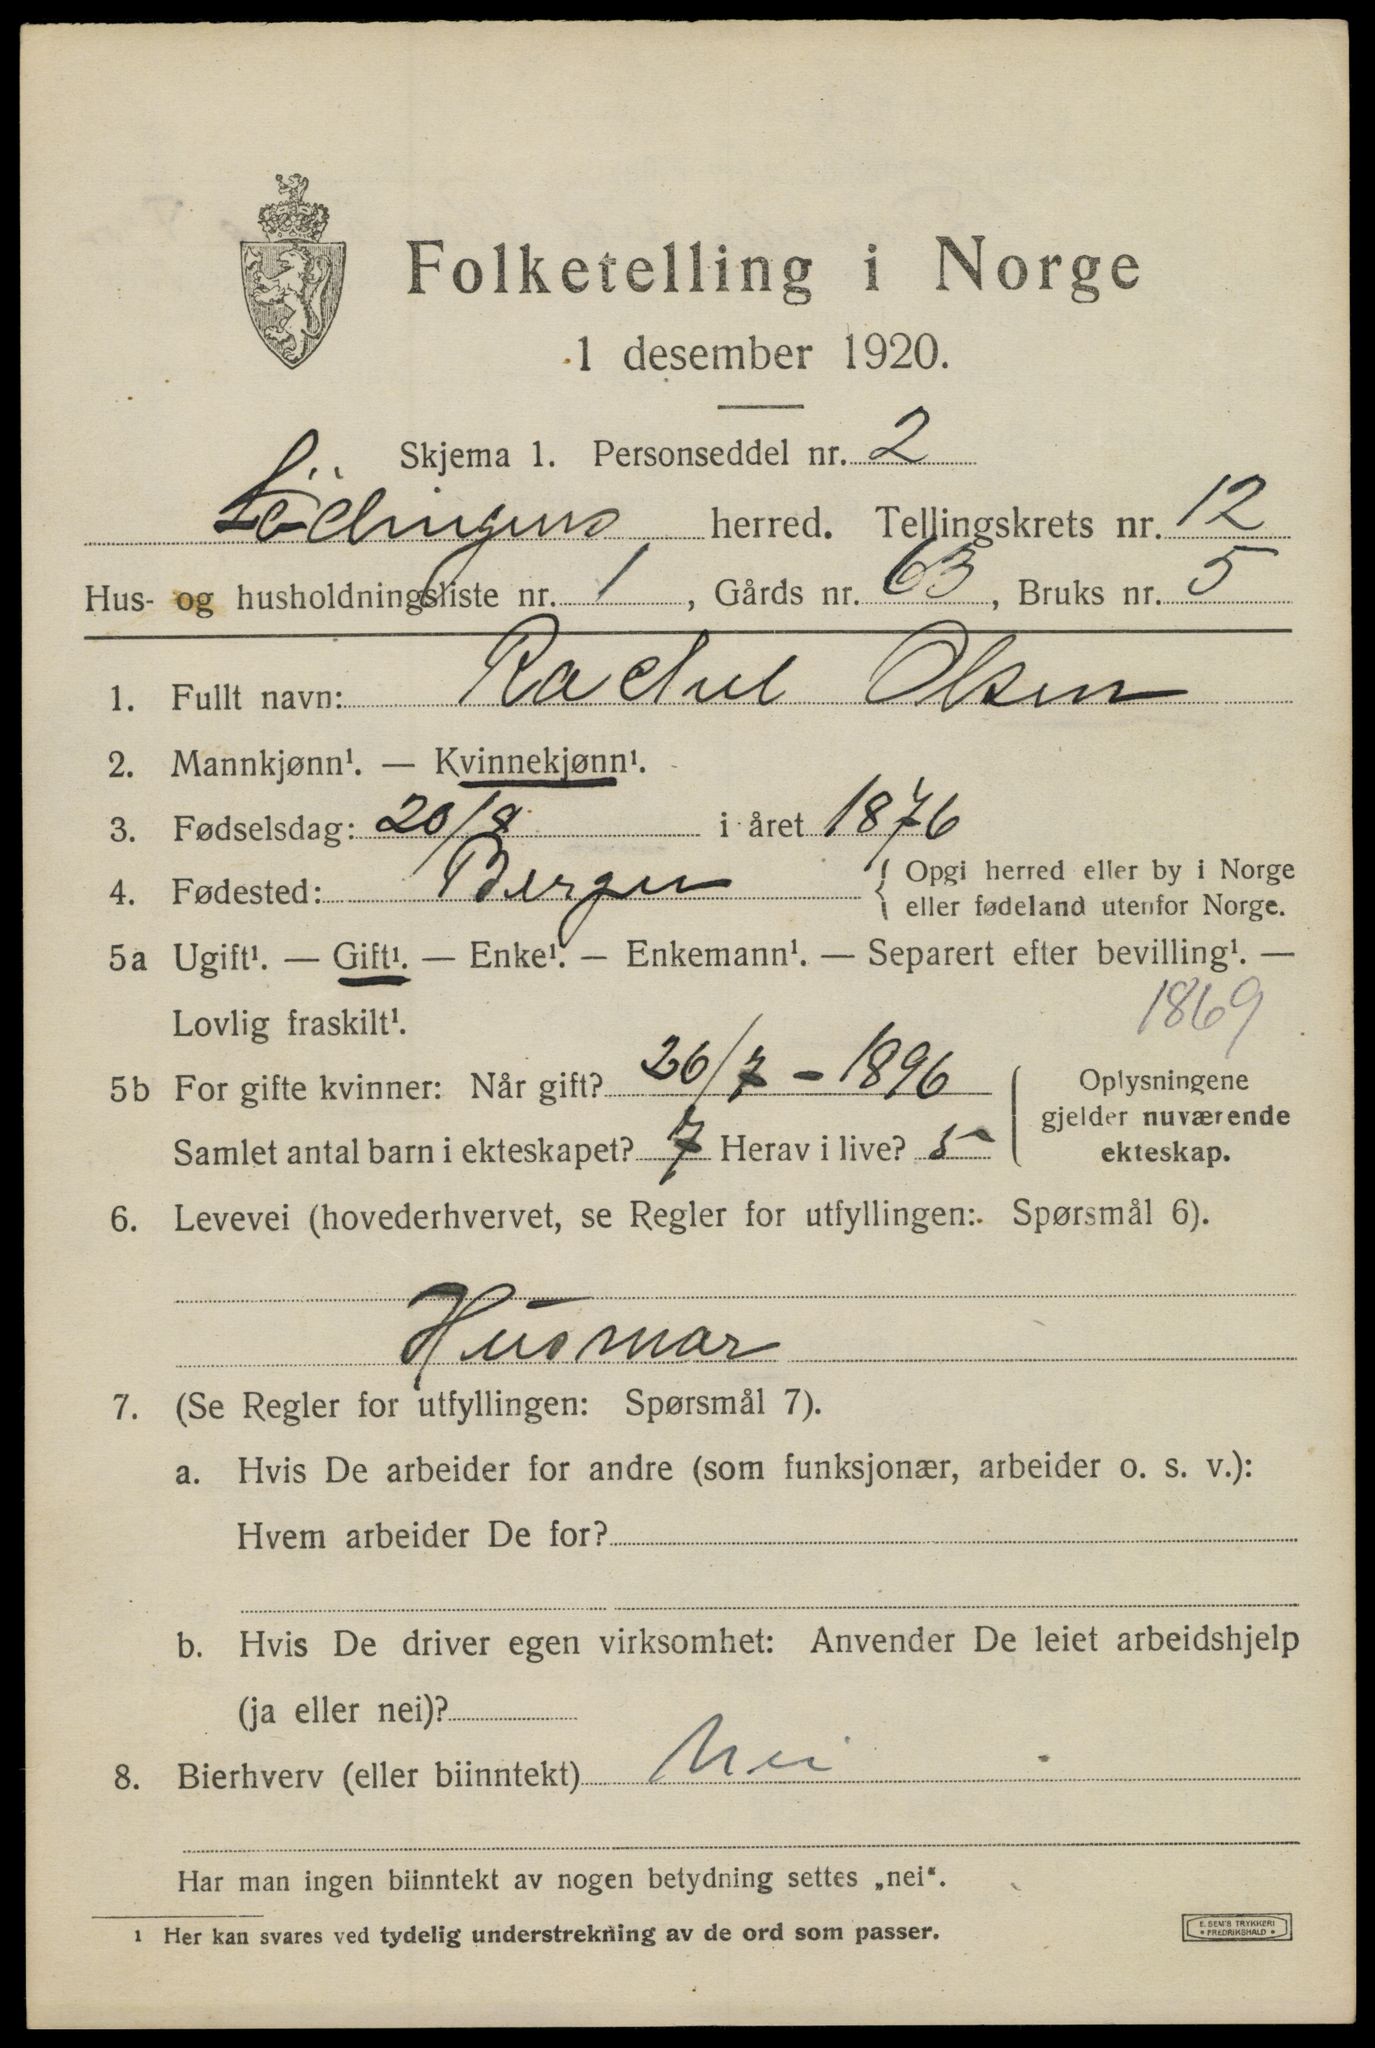 Folketelling i Norge
1 desember 1920.
Skjema 1. Personseddel nr. 2
Lödingens herred. Tellingskrets nr. 12
Hus- og husholdningsliste nr. 1, Gårds nr. 63, Bruks nr. 5
1. Fullt navn: Rachel Olsen
2. Mannkjønn¹. — Kvinnekjønn¹.
3. Fødselsdag: 20/8 i året 1876
4. Fødested: Bergen { Opgi herred eller by i Norge
eller fødeland utenfor Norge.
5a Ugift¹. — Gift¹. — Enke¹. — Enkemann¹. — Separert efter bevilling¹. —
Lovlig fraskilt¹. 1869
5b For gifte kvinner: Når gift? 26/7 - 1896
Samlet antal barn i ekteskapet? 7 Herav i live? 5
Oplysningene
gjelder nuværende
ekteskap.
6. Levevei (hovederhvervet, se Regler for utfyllingen: Spørsmål 6).
Husmor
7. (Se Regler for utfyllingen: Spørsmål 7).
a. Hvis De arbeider for andre (som funksjonær, arbeider o. s. v.):
Hvem arbeider De for?
b. Hvis De driver egen virksomhet: Anvender De leiet arbeidshjelp
(ja eller nei)?
8. Bierhverv (eller biinntekt) Nei
Har man ingen biinntekt av nogen betydning settes „nei“.
¹ Her kan svares ved tydelig understrekning av de ord som passer.
E. SEM'S TRYKKERI
• FREDRIKSHALD •